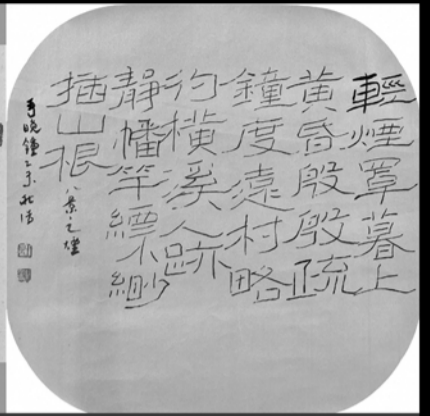 輕煙罩暮上
黄昏殷殷疏
鐘度遠村略
彴橫溪人跡
靜幡竿縹緲
插山根 八景之煙
寺晚鐘乙未秋